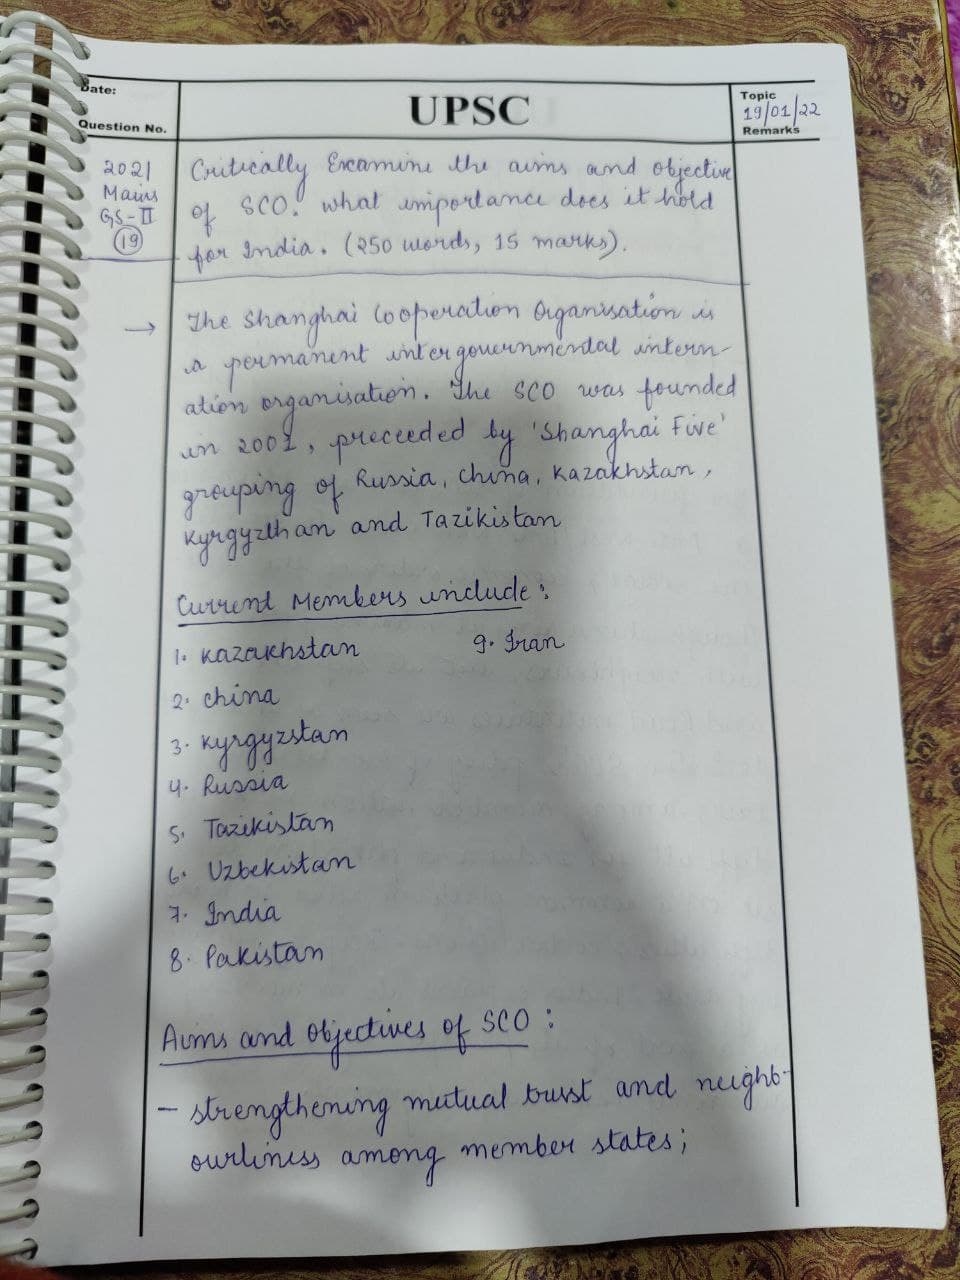 Date:
Question No.
UPSC
Topic
19/01/22
Remarks
2021
Mains
GS-II
19
Critically Examine the aims and objective
of SCO. what importance does it hold
for India. (250 words, 15 marks).
→ The Shanghai Cooperation Organisation is
a permanent intergovernmental intern-
ation organisation. The SCO was founded
in 2001, preceeded by 'Shanghai Five'
grouping of Russia, China, Kazakhstan,
Kyrgyzthan and Tazikistan
Current Members include:
1. Kazakhstan
2. China
3. Kyrgyzstan
4. Russia
5. Tazikistan
6. Uzbekistan
7. India
8. Pakistan
9. Iran
Aims and Objectives of SCO:
- strengthening mutual trust and neighb-
ourliness among member states;